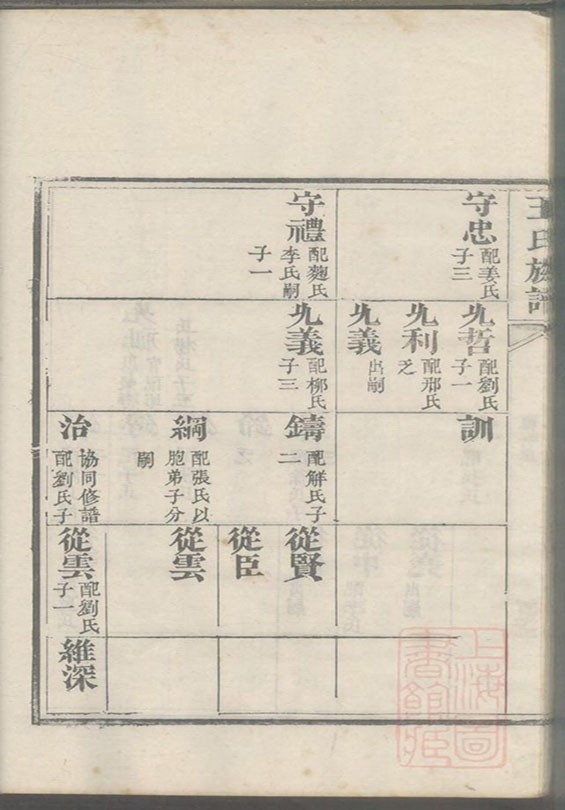 王氏族譜
守忠
配姜氏
子三
守禮
配魏氏
李氏嗣
子一
九哲
配劉氏
子一
九利
配邢氏
乏
九義
出嗣
九義
配柳氏
子三
訓
鑄
配解氏子
二
綱
配張氏以
胞弟子分
嗣
治
協同修譜
配劉氏子
從賢
從臣
從雲
從雲
配劉氏
子一
維深
上海圖
書館藏